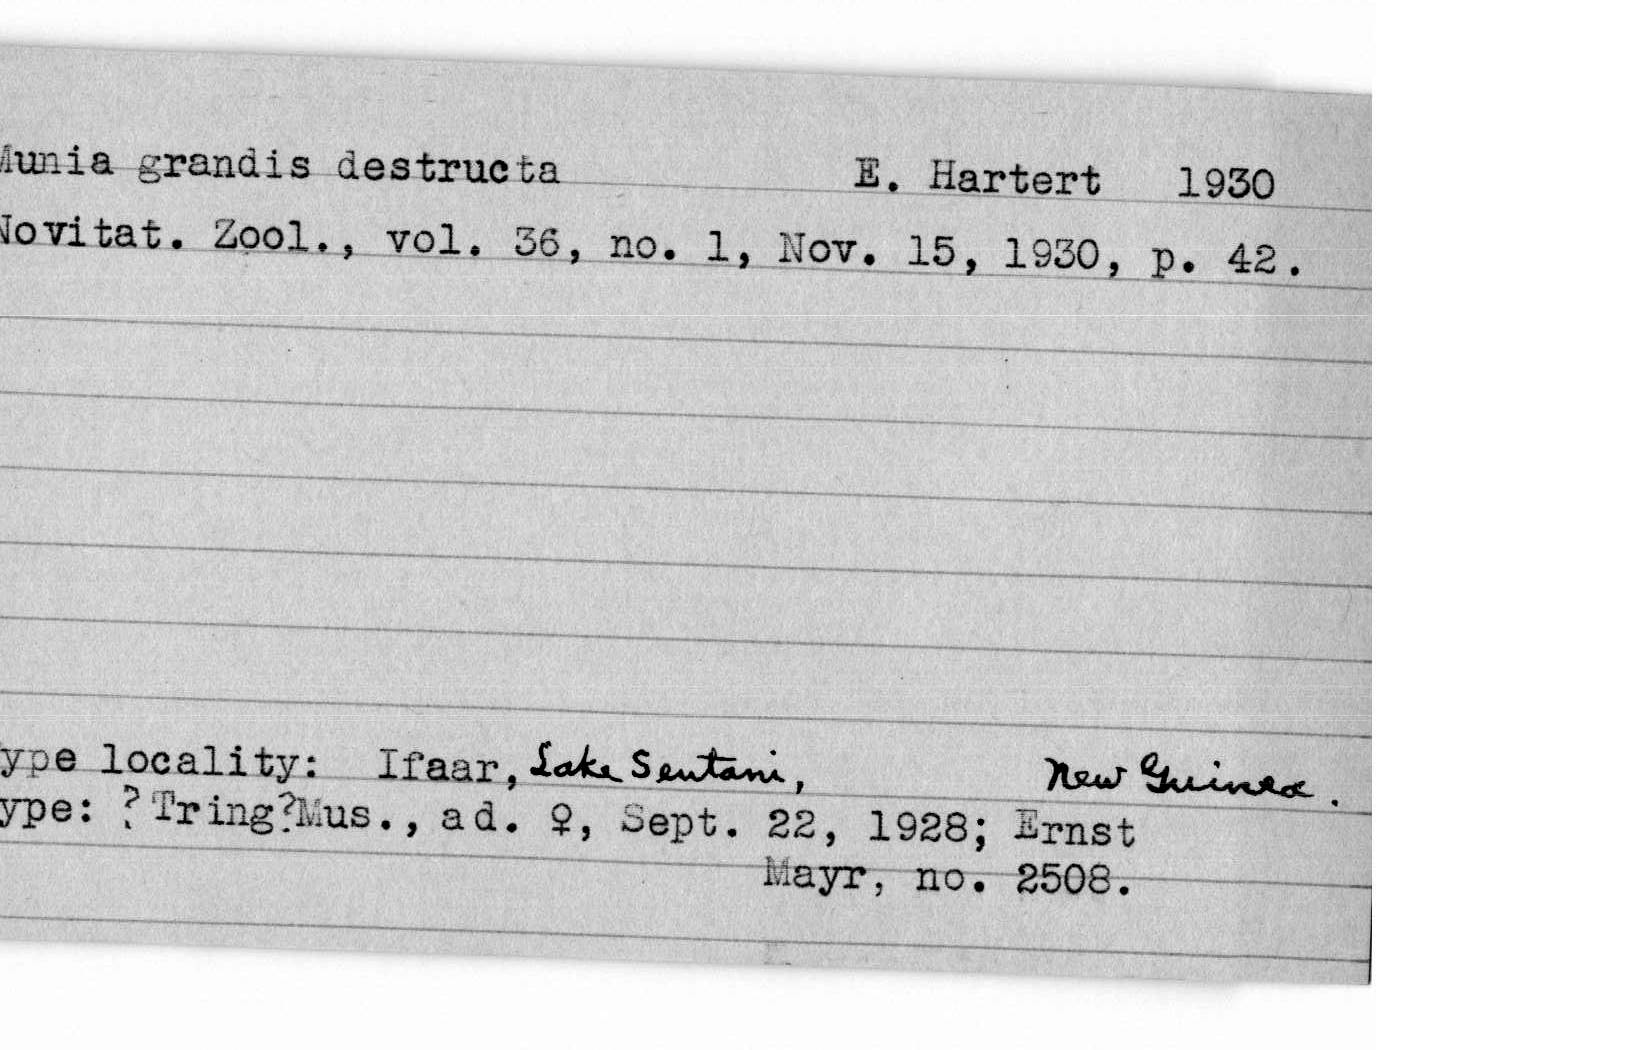 Munia grandis destructa E. Hartert 1930
Novitat. Zool., vol. 36, no. 1, Nov. 15, 1930, p. 42.
ype locality: Ifaar, Lake Sentani, New Guinea.
ype: ?Tring?Mus., ad. ♀, Sept. 22, 1928; Ernst
Mayr, no. 2508.